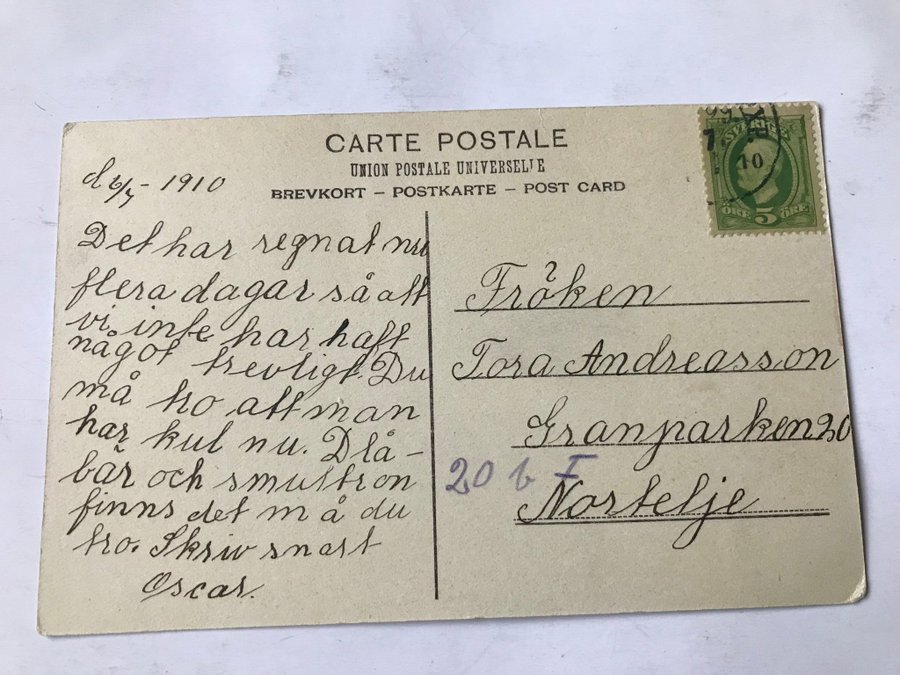 CARTE POSTALE
UNION POSTALE UNIVERSELJE
BREVKORT – POSTKARTE – POST CARD
d 6/7 – 1910
Det har regnat nu
flera dagar så att
vi inte har haft
något trevligt. Du
må tro att man
har kul nu. Blå-
bär och smultron
finns det må du
tro. Skriv snart
Oscar.
7
10
ÖRE 5 ÖRE
Fröken
Tora Andreasson
Granparken 20
20 b I
Nortelje